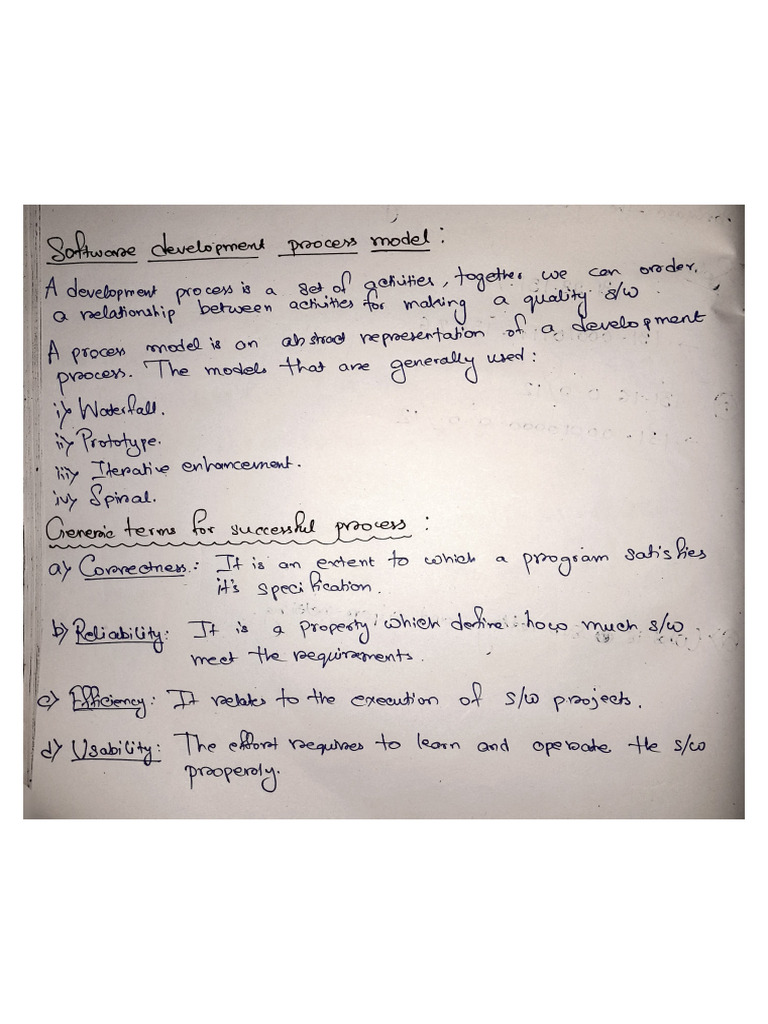 Software development process model :
A development process is a set of activities, together we can order,
a relationship between activities for making a quality s/w
A process model is an abstract representation of a development
process. The models that are generally used :
i) Waterfall.
ii) Prototype.
iii) Iterative enhancement.
iv) Spiral.
Generic terms for successful process :
a) Correctness : It is an extent to which a program satisfies
it's specification.
b) Reliability : It is a property which define how much s/w
meet the requirements.
c) Efficiency : It relates to the execution of s/w projects.
d) Usability : The effort requires to learn and operate the s/w
properly.